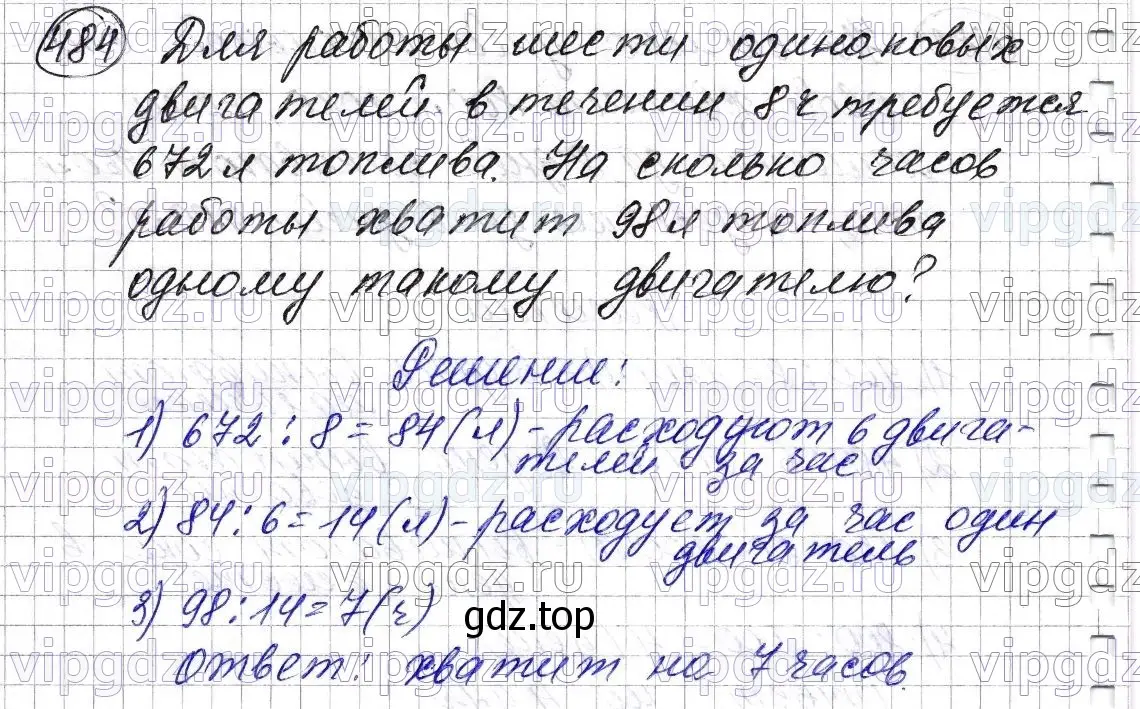 484 Для работы шести одинаковых
двигателей в течении 8 ч требуется
672 л топлива. На сколько часов
работы хватит 98 л топлива
одному такому двигателю?
Решение:
1) 672 : 8 = 84 (л) - расходуют 6 двига-
телей за час
2) 84 : 6 = 14 (л) - расходует за час один
двигатель
3) 98 : 14 = 7 (ч)
gdz.top
Ответ: хватит на 7 часов.
vipgdz.ru